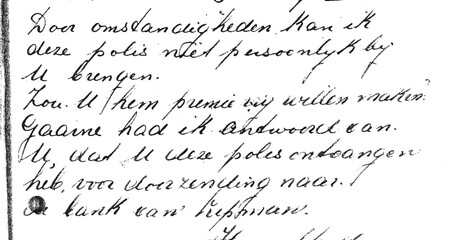 Door omstandigheden kan ik
deze polis niet persoonlyk by
U brengen.
Zou U hem premie vry willen maken.
Gaarne had ik antwoord van.
U, dat U deze polis ontvangen
heb, voor doorzending naar.
de bank van Lipman.